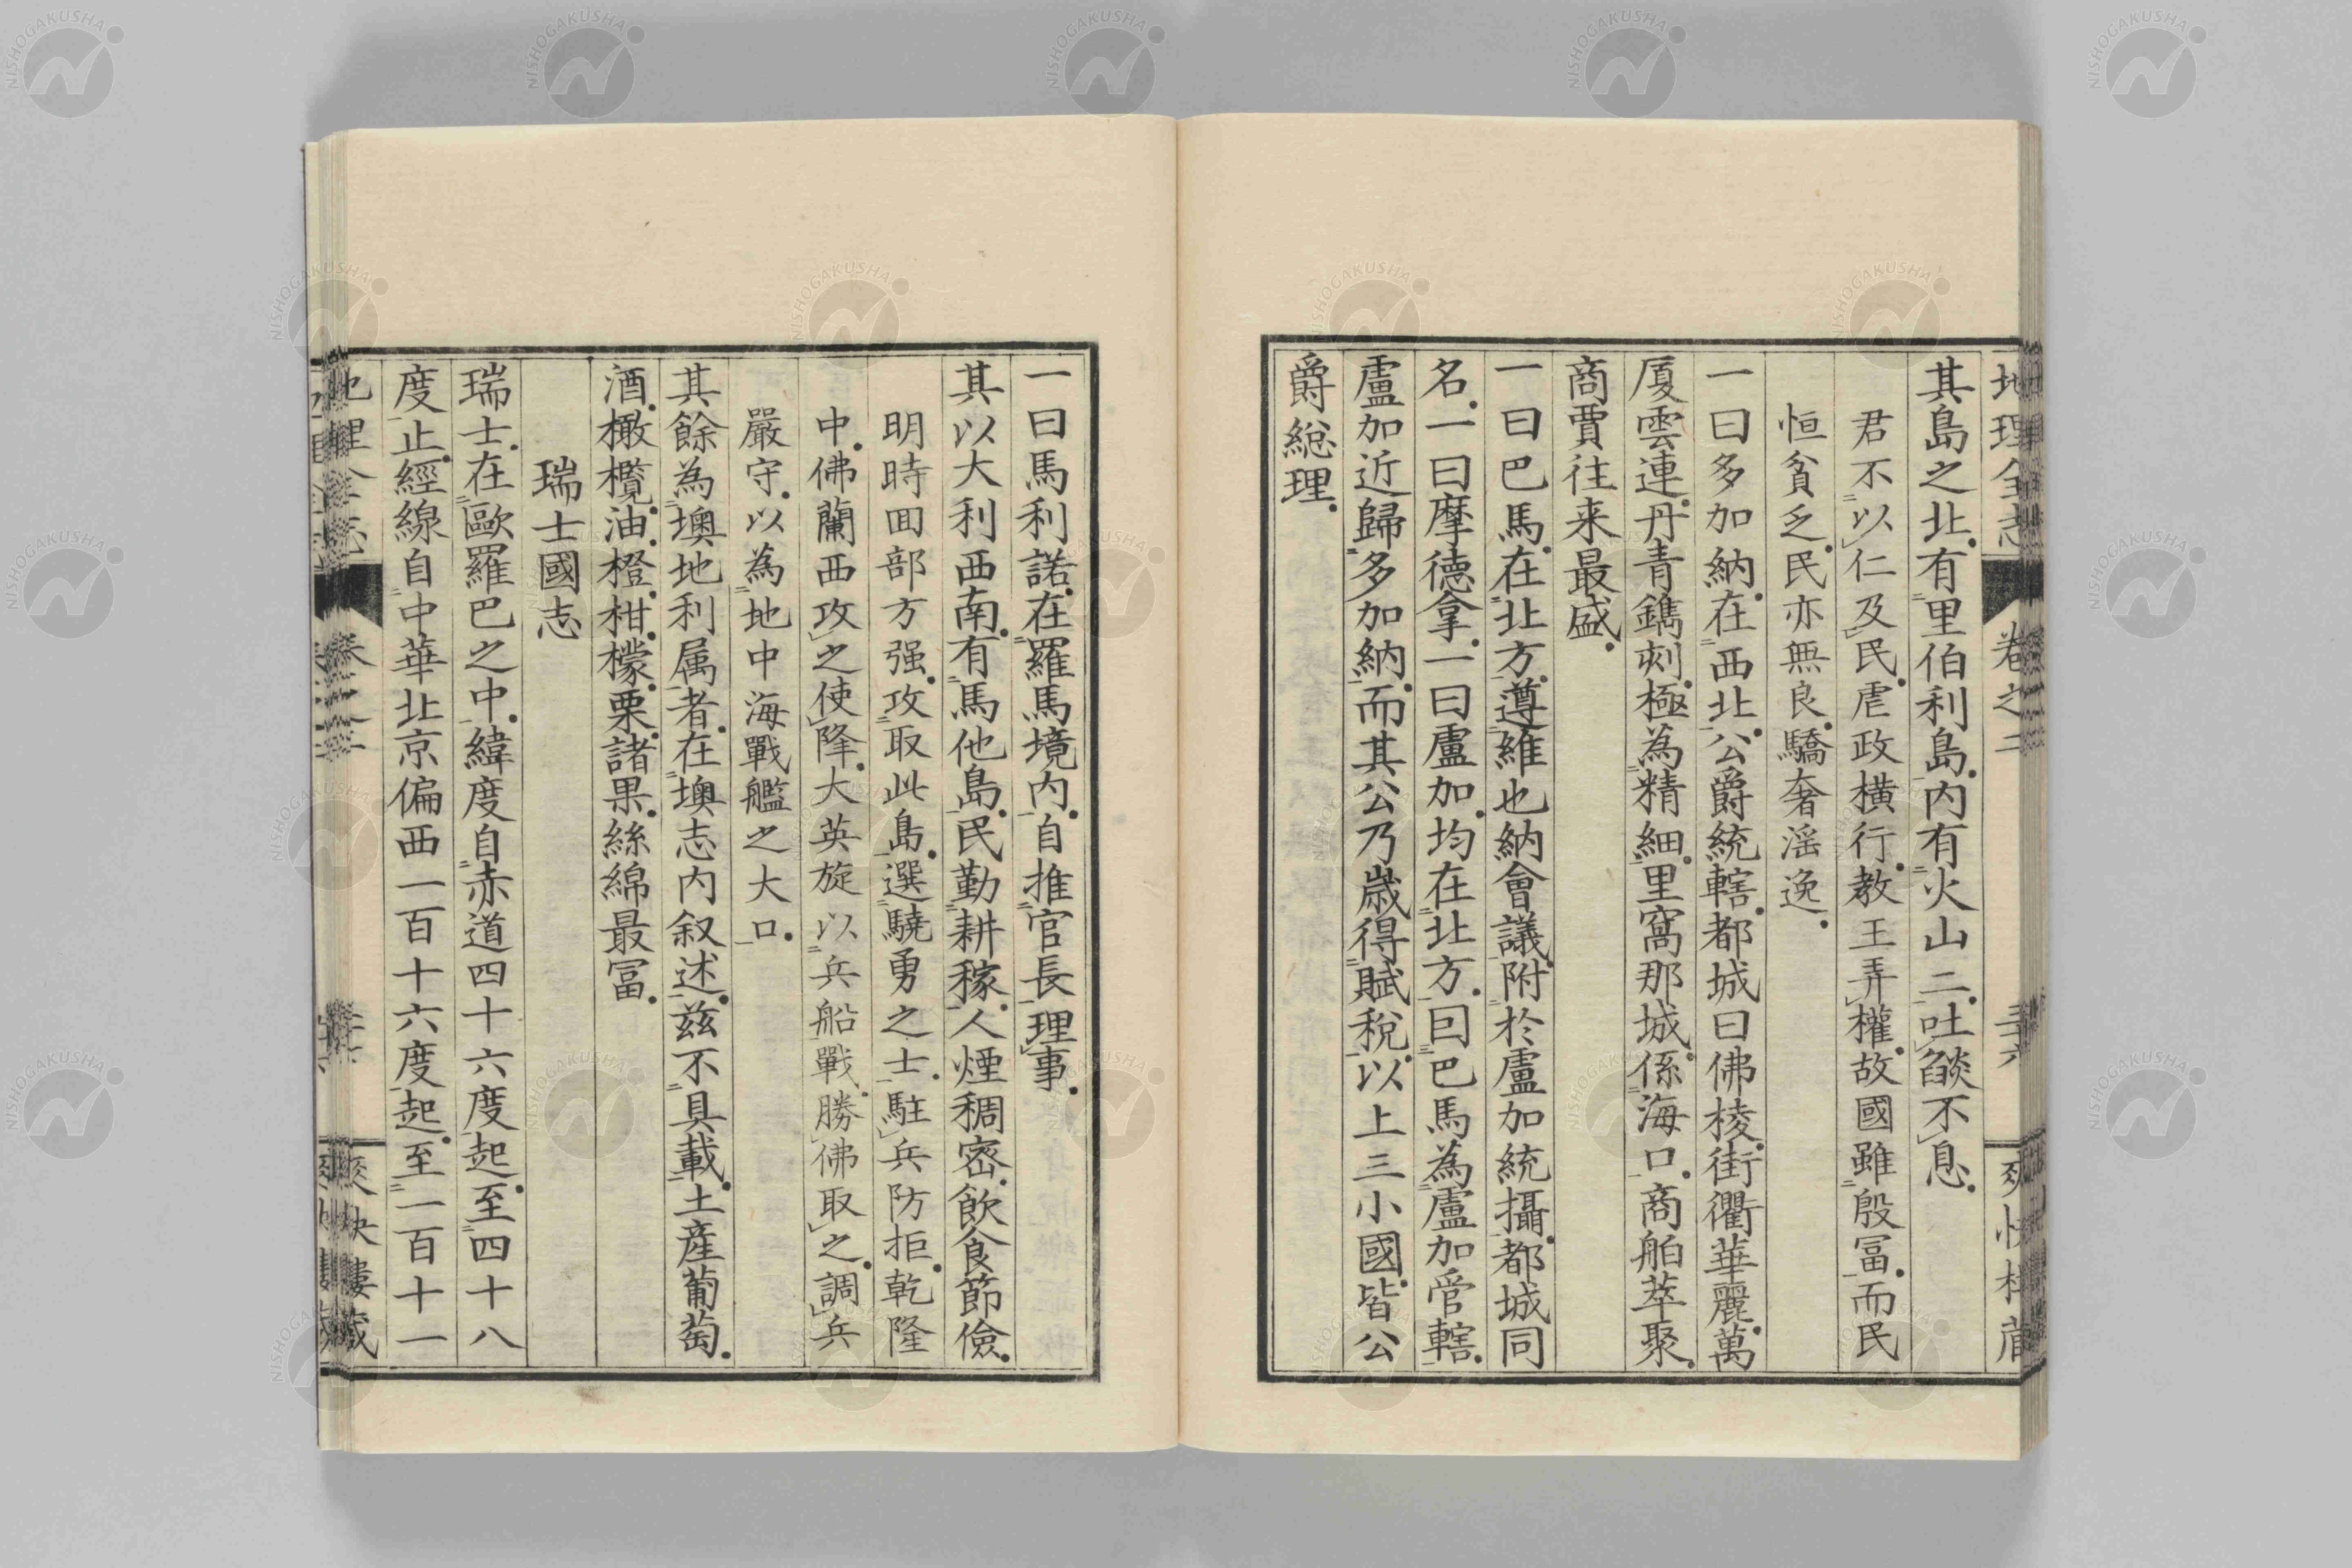 地理全志 卷之二 三六 爽快樓藏
其島之北有里伯利島内有火山二吐燄不息
君不以仁及民虐政橫行教王弄權故國雖殷冨而民
恒貧乏民亦無良驕奢淫逸
一曰多加納在西北公爵統轄都城曰佛棱街衢華麗萬
厦雲連丹青鐫刻極為精細里窩那城係海口商舶萃聚
商賈往来最盛
一曰巴馬在北方遵維也納會議附於盧加統攝都城同
名一曰摩德拿一曰盧加均在北方曰巴馬為盧加管轄
盧加近歸多加納而其公乃歲得賦稅以上三小國皆公
爵総理
一曰馬利諾在羅馬境内自推官長理事
其以大利西南有馬他島民勤耕稼人煙稠密飲食節儉
明時回部方强攻取此島選驍勇之士駐兵防拒乾隆
中佛蘭西攻之使降大英旋以兵船戰勝佛取之調兵
嚴守以為地中海戰艦之大口
其餘為墺地利属者在墺志内叙述茲不具載土産葡萄
酒橄欖油橙柑檬栗諸果絲綿最冨
瑞士國志
瑞士在歐羅巴之中緯度自赤道四十六度起至四十八
度止經線自中華北京偏西一百十六度起至一百十一
地理全志 卷之二